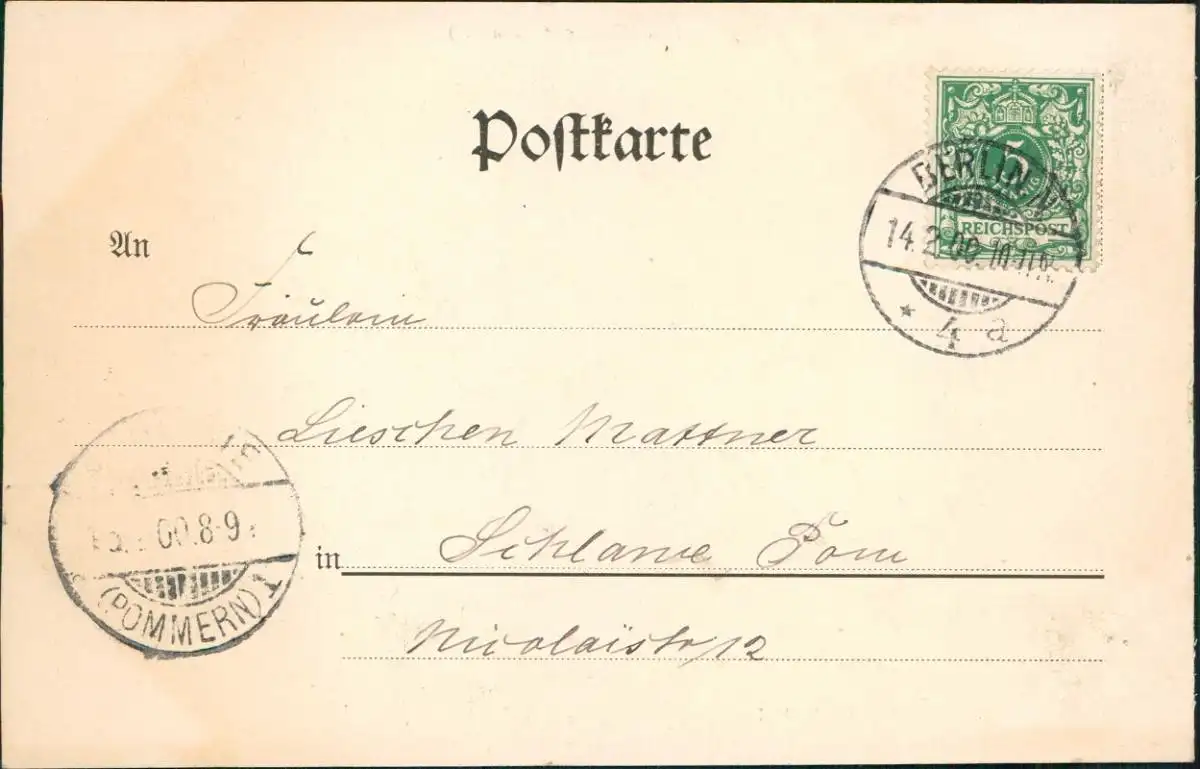 Postkarte
5
REICHSPOST
BERLIN N
14.2.00.10-11N.
* 4 a
An
Fräulein
Lieschen Mattner
in Schlawe Pom
Nicolaistr 12
00.8-9
(POMMERN) 1